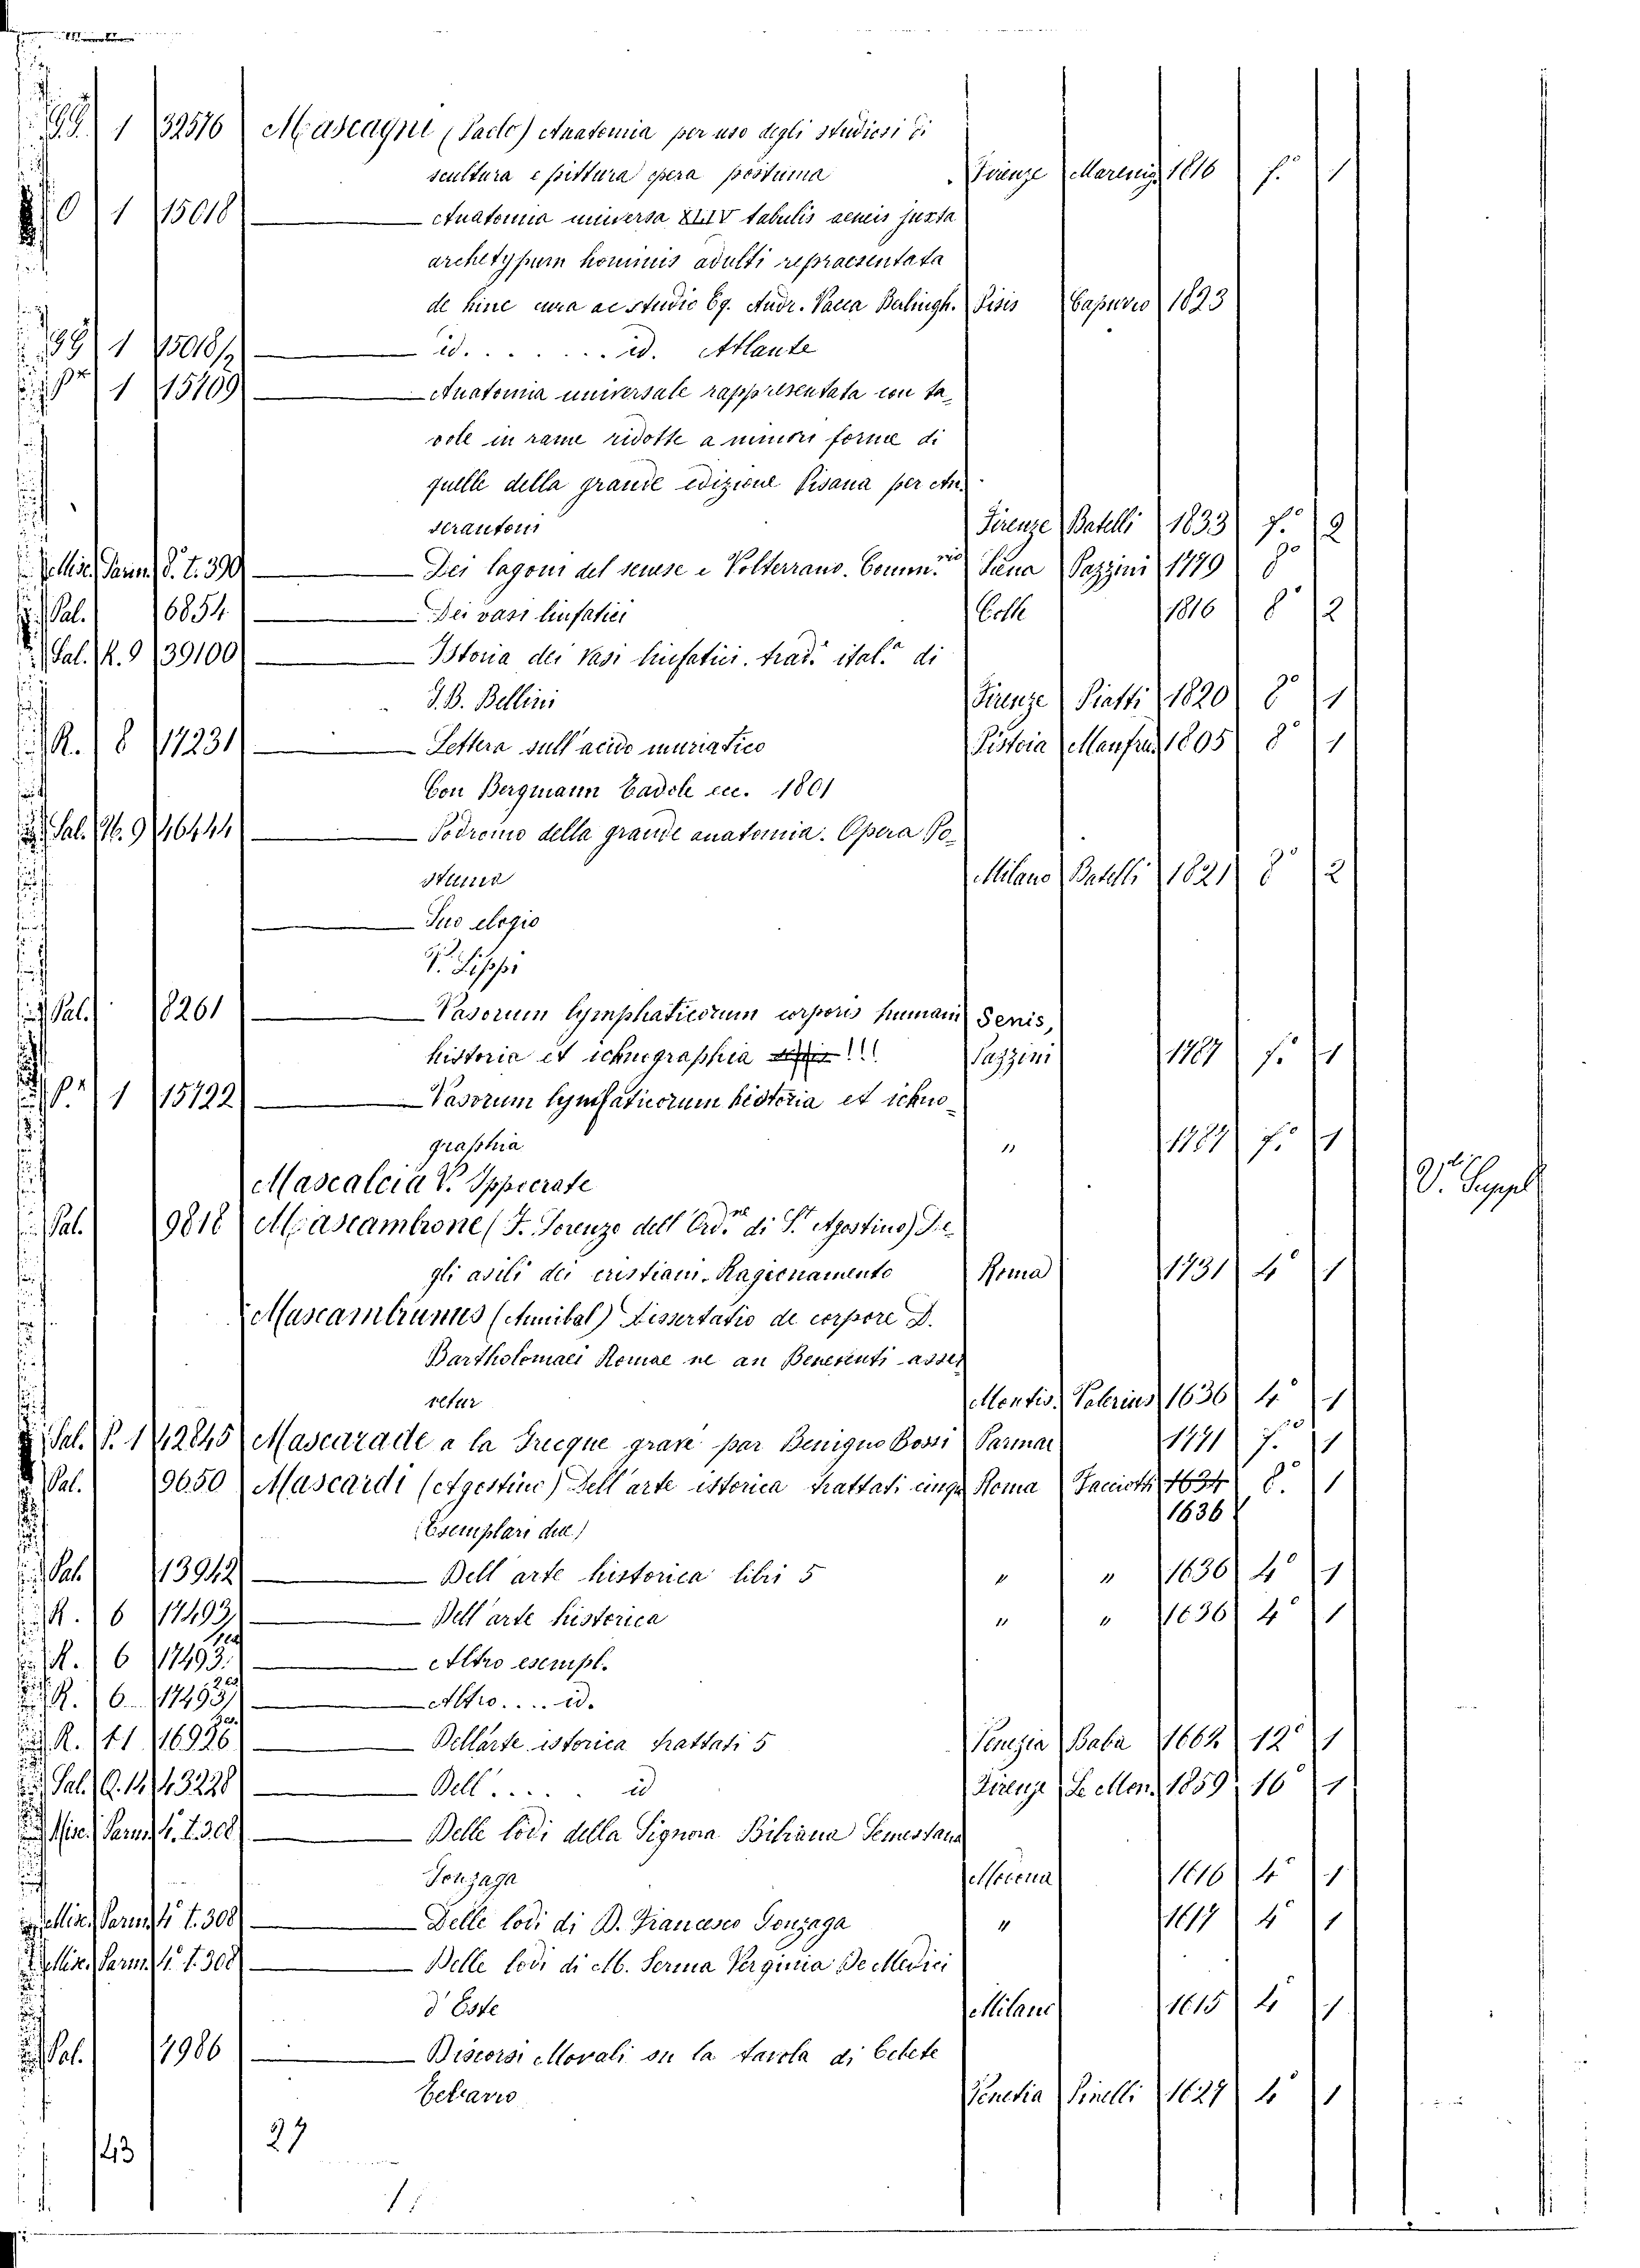 GG. 1 32576 Mascagni (Paolo) Anatomia per uso degli studiosi di
scultura e pittura opera postuma Firenze Marenig 1816 f.° 1
1 15018 — Anatomia universa XLIV tabulis aeneis juxta
archetypum hominis adulti repraesentata
de hinc cura ac studio Eq. Andr. Vacca Berlingh. Pisis Capurro 1823
1 15018/2 — id. . . . . . . id. Atlante
1 15109 — Anatomia universale rappresentata con ta-
vole in rame ridotte a minori forme di
quelle della grande edizione Pisana per An-
serantoni Firenze Batelli 1833 f.° 2
Misc. Parm. 8. t. 390 — Dei lagoni del senese e Volterrano. Comm.rio Siena Pazzini 1779 8°
Pal. 6854 — Dei vasi linfatici Colle 1816 8° 2
Sal. R. 9 39100 — Istoria dei Vasi linfatici. trad. ital.a di
G. B. Bellini Firenze Piatti 1820 8° 1
R. 8 17231 — Lettera sull'acido muriatico Pistoia Manfred. 1805 8° 1
Con Bergmann ecc. 1801
Sal. N. 9 46444 — Podromo della grande anatomia. Opera Po-
stuma Milano Batelli 1821 8° 2
— Suo elogio
V. Lippi
Pal. 8261 — Vasorum lymphaticorum corporis humani Senis,
historia et ichnographia !!! Pazzini 1787 f.° 1
P.r 1 15722 — Vasorum lymfaticorum historia et ichno-
graphia " 1787 f.° 1
Mascalcia V. Ippocrate V. Suppl
Pal. 9818 Mascambrone (F. Lorenzo dell'Ord.ne di S. Agostino) De-
gli asili dei cristiani. Ragionamento Roma 1731 4° 1
Mascambrunus (Annibal) Dissertatio de corpore D.
Bartholomaei Romae ne an Beneventi asser
vetur Montis. Valerius 1636 4° 1
Sal. P. 1 42845 Mascarade a la Grecque gravé par Benigno Bossi Parmae 1771 f.° 1
Pal. 9650 Mascardi (Agostino) Dell'arte istorica trattati cinqu Roma Facciotti 1634 8. 1
1636
(Esemplari due)
Pal. 13942 — Dell'arte historica libri 5 " " 1636 4° 1
R. 6 17493 — Dell'arte historica " " 1636 4° 1
R. 6 17493. — Altro esempl.
R. 6 17493 — Altro . . . . id.
R. 11 16926 — Dell'arte istorica trattati 5 Venezia Baba 1662 12° 1
Sal. Q. 14 43228 — Dell' . . . . id Firenze Le Mon. 1859 16° 1
Misc. Parm. 4. t. 308 — Delle lodi della Signora Bibiana
Gonzaga Modena 1616 4° 1
Misc. Parm. 4° t. 308 — Delle lodi di D. Francesco Gonzaga " 1617 4° 1
Misc. Parm. 4. t. 308 — Delle lodi di M. Serma Verginia De Medici
d'Este Milano 1615 4 1
Pal. 7986 — Discorsi Morali su la tavola di Cebete
Tebano Venetia Pinelli 1627 4° 1
43 27